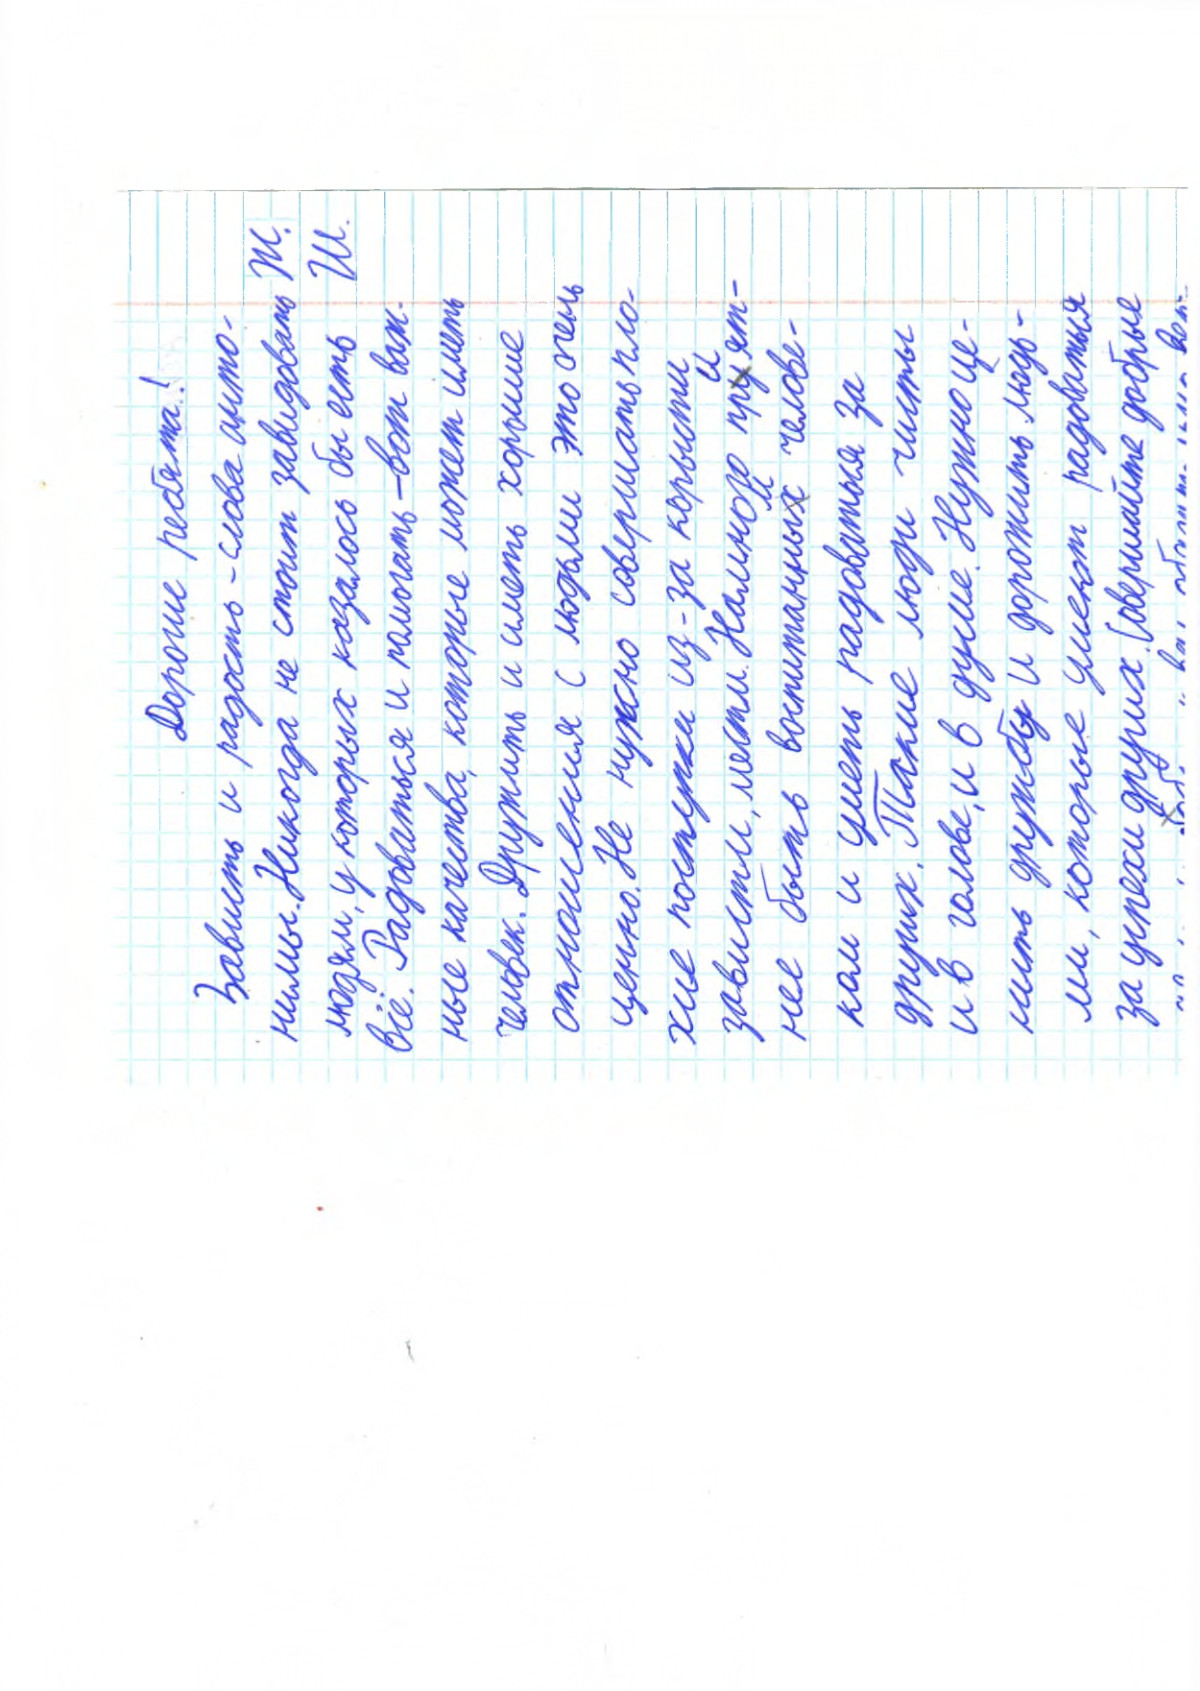 Дорогие ребята!
Зависть и радость - слова анто-
нимы. Никогда не стоит завидовать Ж.
людям, у которых казалось бы есть Ш.
всё. Радоваться и помогать - вот важ-
ные качества, которые может иметь
человек. Дружить и иметь хорошие
отношения с людьми это очень
ценно. Не нужно совершать пло-
хие поступки из-за корысти
зависти, мести. Намного прият-
нее быть воспитанным челове-
ком и уметь радоваться за
других. Такие люди чисты
и в голове, и в душе. Нужно це-
нить дружбу и дорожить людь-
ми, которые умеют радоваться
за успехи других. Совершайте добрые